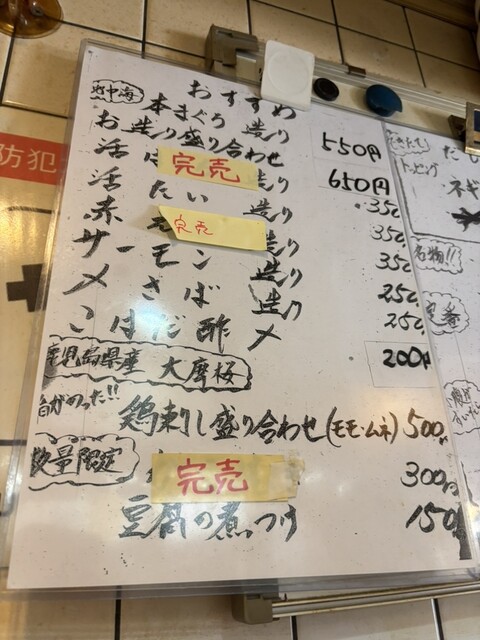 おすすめ
地中海 本まぐろ 造り 550円
お造り盛り合わせ 650円
活 は 完売 造り 350
活 たい 造り 350
赤 完売 造り 350
サーモン 造り 250
〆さば 造り 250
こはだ酢〆 200円
鹿児島県産 大摩桜
鶏刺し盛り合わせ(モモ・ムネ) 500円
数量限定 完売 300円
豆腐の煮つけ 150円
防犯
トッピング
ネギ
名物!!
定番